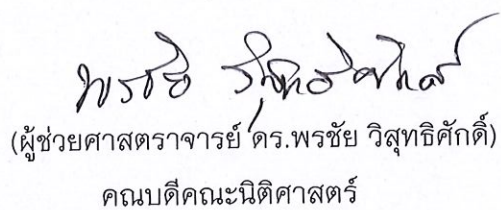 พรชัย วิสุทธิศักดิ์
(ผู้ช่วยศาสตราจารย์ ดร.พรชัย วิสุทธิศักดิ์)
คณบดีคณะนิติศาสตร์